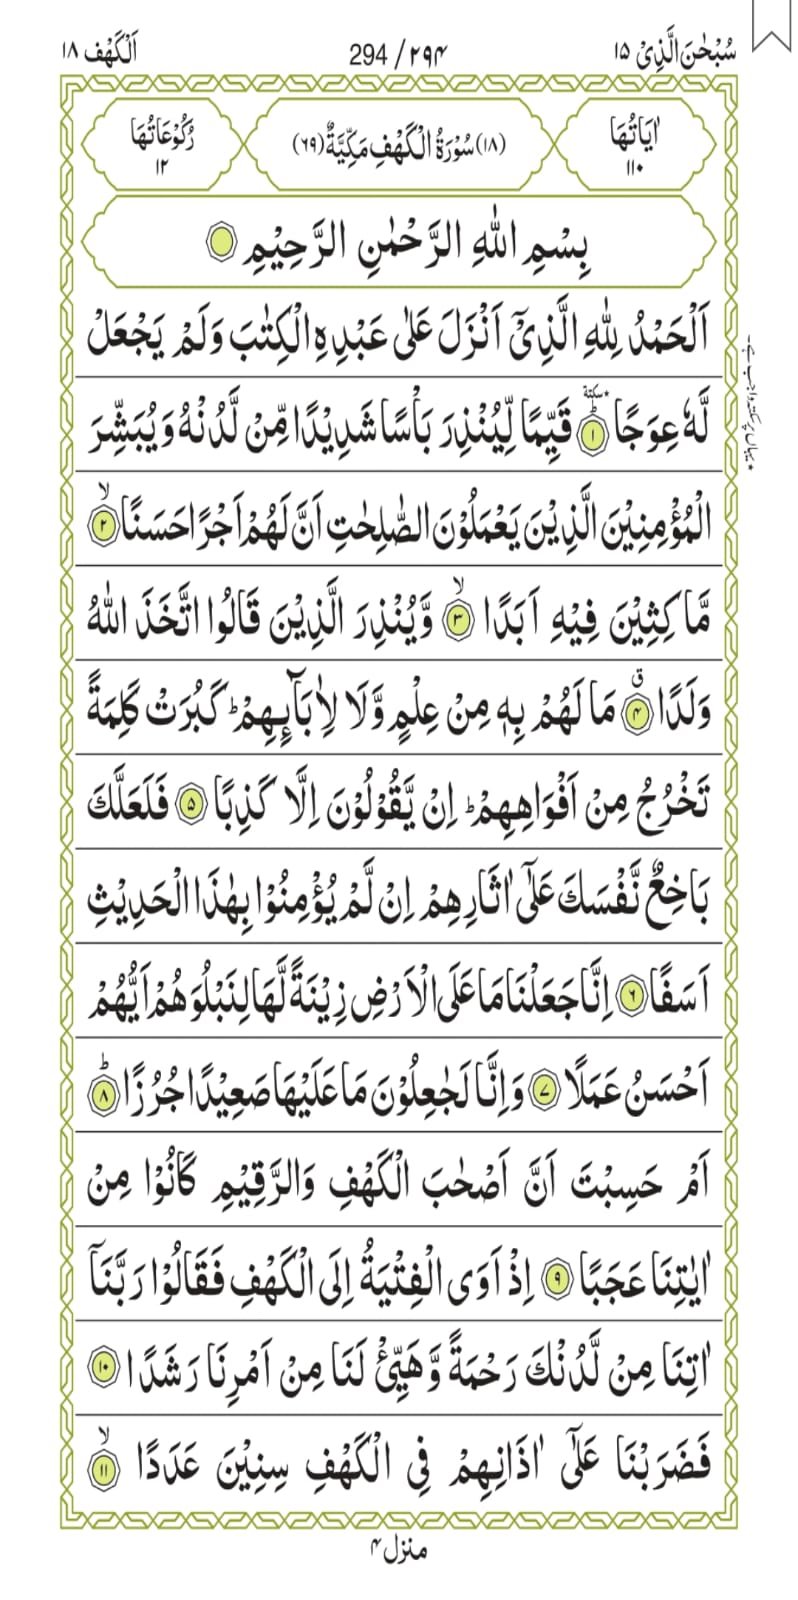 سُبْحٰنَ الَّذِیْ ١٥
294 / ۲۹۴
اَلْكَهْف ١٨
اٰیَاتُهَا ١١٠
(١٨) سُوْرَةُ الْكَهْفِ مَكِّیَّةٌ (٦٩)
رُكُوْعَاتُهَا ١٢
بِسْمِ اللهِ الرَّحْمٰنِ الرَّحِیْمِ
اَلْحَمْدُ لِلّٰهِ الَّذِیْۤ اَنْزَلَ عَلٰی عَبْدِهِ الْكِتٰبَ وَلَمْ یَجْعَلْ
لَّهٗ عِوَجًا ؕ ﴿۱﴾ سكتة* قَیِّمًا لِّیُنْذِرَ بَاْسًا شَدِیْدًا مِّنْ لَّدُنْهُ وَ یُبَشِّرَ
الْمُؤْمِنِیْنَ الَّذِیْنَ یَعْمَلُوْنَ الصّٰلِحٰتِ اَنَّ لَهُمْ اَجْرًا حَسَنًا ۙ ﴿۲﴾
مَّاكِثِیْنَ فِیْهِ اَبَدًا ۙ ﴿۳﴾ وَّیُنْذِرَ الَّذِیْنَ قَالُوا اتَّخَذَ اللهُ
وَلَدًا ۗق ﴿۴﴾ مَا لَهُمْ بِهٖ مِنْ عِلْمٍ وَّلَا لِاٰبَآىِٕهِمْ ؕ كَبُرَتْ كَلِمَةً
تَخْرُجُ مِنْ اَفْوَاهِهِمْ ؕ اِنْ یَّقُوْلُوْنَ اِلَّا كَذِبًا ﴿۵﴾ فَلَعَلَّكَ
بَاخِعٌ نَّفْسَكَ عَلٰۤی اٰثَارِهِمْ اِنْ لَّمْ یُؤْمِنُوْا بِهٰذَا الْحَدِیْثِ
اَسَفًا ﴿۶﴾ اِنَّا جَعَلْنَا مَا عَلَی الْاَرْضِ زِیْنَةً لَّهَا لِنَبْلُوَهُمْ اَیُّهُمْ
اَحْسَنُ عَمَلًا ﴿۷﴾ وَ اِنَّا لَجٰعِلُوْنَ مَا عَلَیْهَا صَعِیْدًا جُرُزًا ؕ ﴿۸﴾
اَمْ حَسِبْتَ اَنَّ اَصْحٰبَ الْكَهْفِ وَالرَّقِیْمِ كَانُوْا مِنْ
اٰیٰتِنَا عَجَبًا ﴿۹﴾ اِذْ اَوَی الْفِتْیَةُ اِلَی الْكَهْفِ فَقَالُوْا رَبَّنَاۤ
اٰتِنَا مِنْ لَّدُنْكَ رَحْمَةً وَّ هَیِّئْ لَنَا مِنْ اَمْرِنَا رَشَدًا ﴿۱۰﴾
فَضَرَبْنَا عَلٰۤی اٰذَانِهِمْ فِی الْكَهْفِ سِنِیْنَ عَدَدًا ۙ ﴿۱۱﴾
*یہاں پر سکتہ واجب ہے۔
منزل ۴